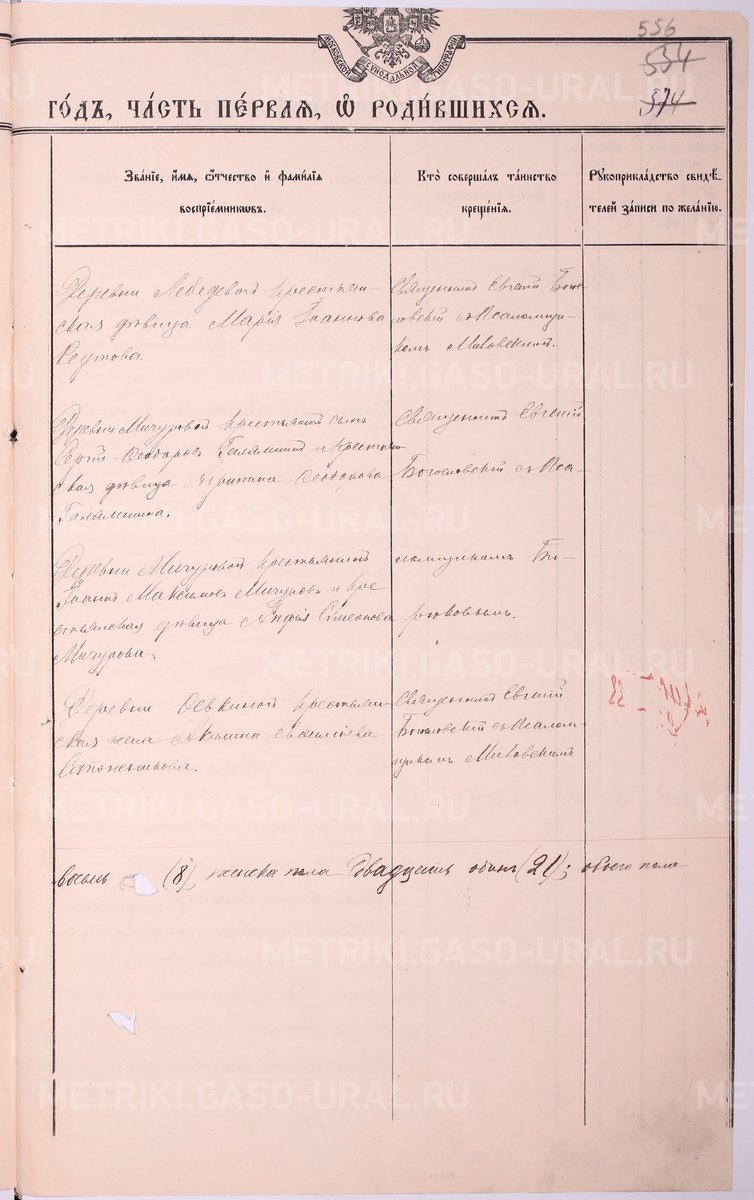 556
534
574
МОСКОВСКОЙ СѴНОДАЛЬНОЙ ТИПОГРАФІИ
ГО́ДЪ, ЧА́СТЬ ПЕ́РВАѦ, Ѡ҆ РОДИ́ВШИХСѦ.
Зва́нїе, и҆́мѧ, ѻ҆́тчество и҆ фами́лїѧ
воспрїе́мникѡвъ.
Кто̀ соверша́лъ та́инство
креще́нїѧ.
Рꙋкоприкла́дство свидѣ́-
телей за́писи по жела́нїю.
Деревни Лебедевой крестьян-
ская дѣвица Марія Іоаннова
Реутова.
Священникъ Евгеній Бого-
словскій съ Псаломщи-
комъ Миковскимъ.
Деревни Мичуровой крестьянскій сынъ
Сергій Ѳеодоровъ Галямшинъ и крестьян-
ская дѣвица Агрипина Ѳеодорова
Галямшина.
Священникъ Евгеній
Богословскій съ Пса-
Деревни Мичуровой крестьянинъ
Іоаннъ Максимовъ Мичуровъ и кре-
стьянская дѣвица Анфія Симеонова
Мичурова.
ломщикомъ Би-
рюковымъ.
Деревни крестьян-
ская жена Акилина Евсигніева
Сапожникова.
Священникъ Евгеній
Богословскій съ Псалом-
щикомъ Миковскимъ
восемь (8), женска пола двадцать одинъ (21); обоего пола
METRIKI.GASO-URAL.RU